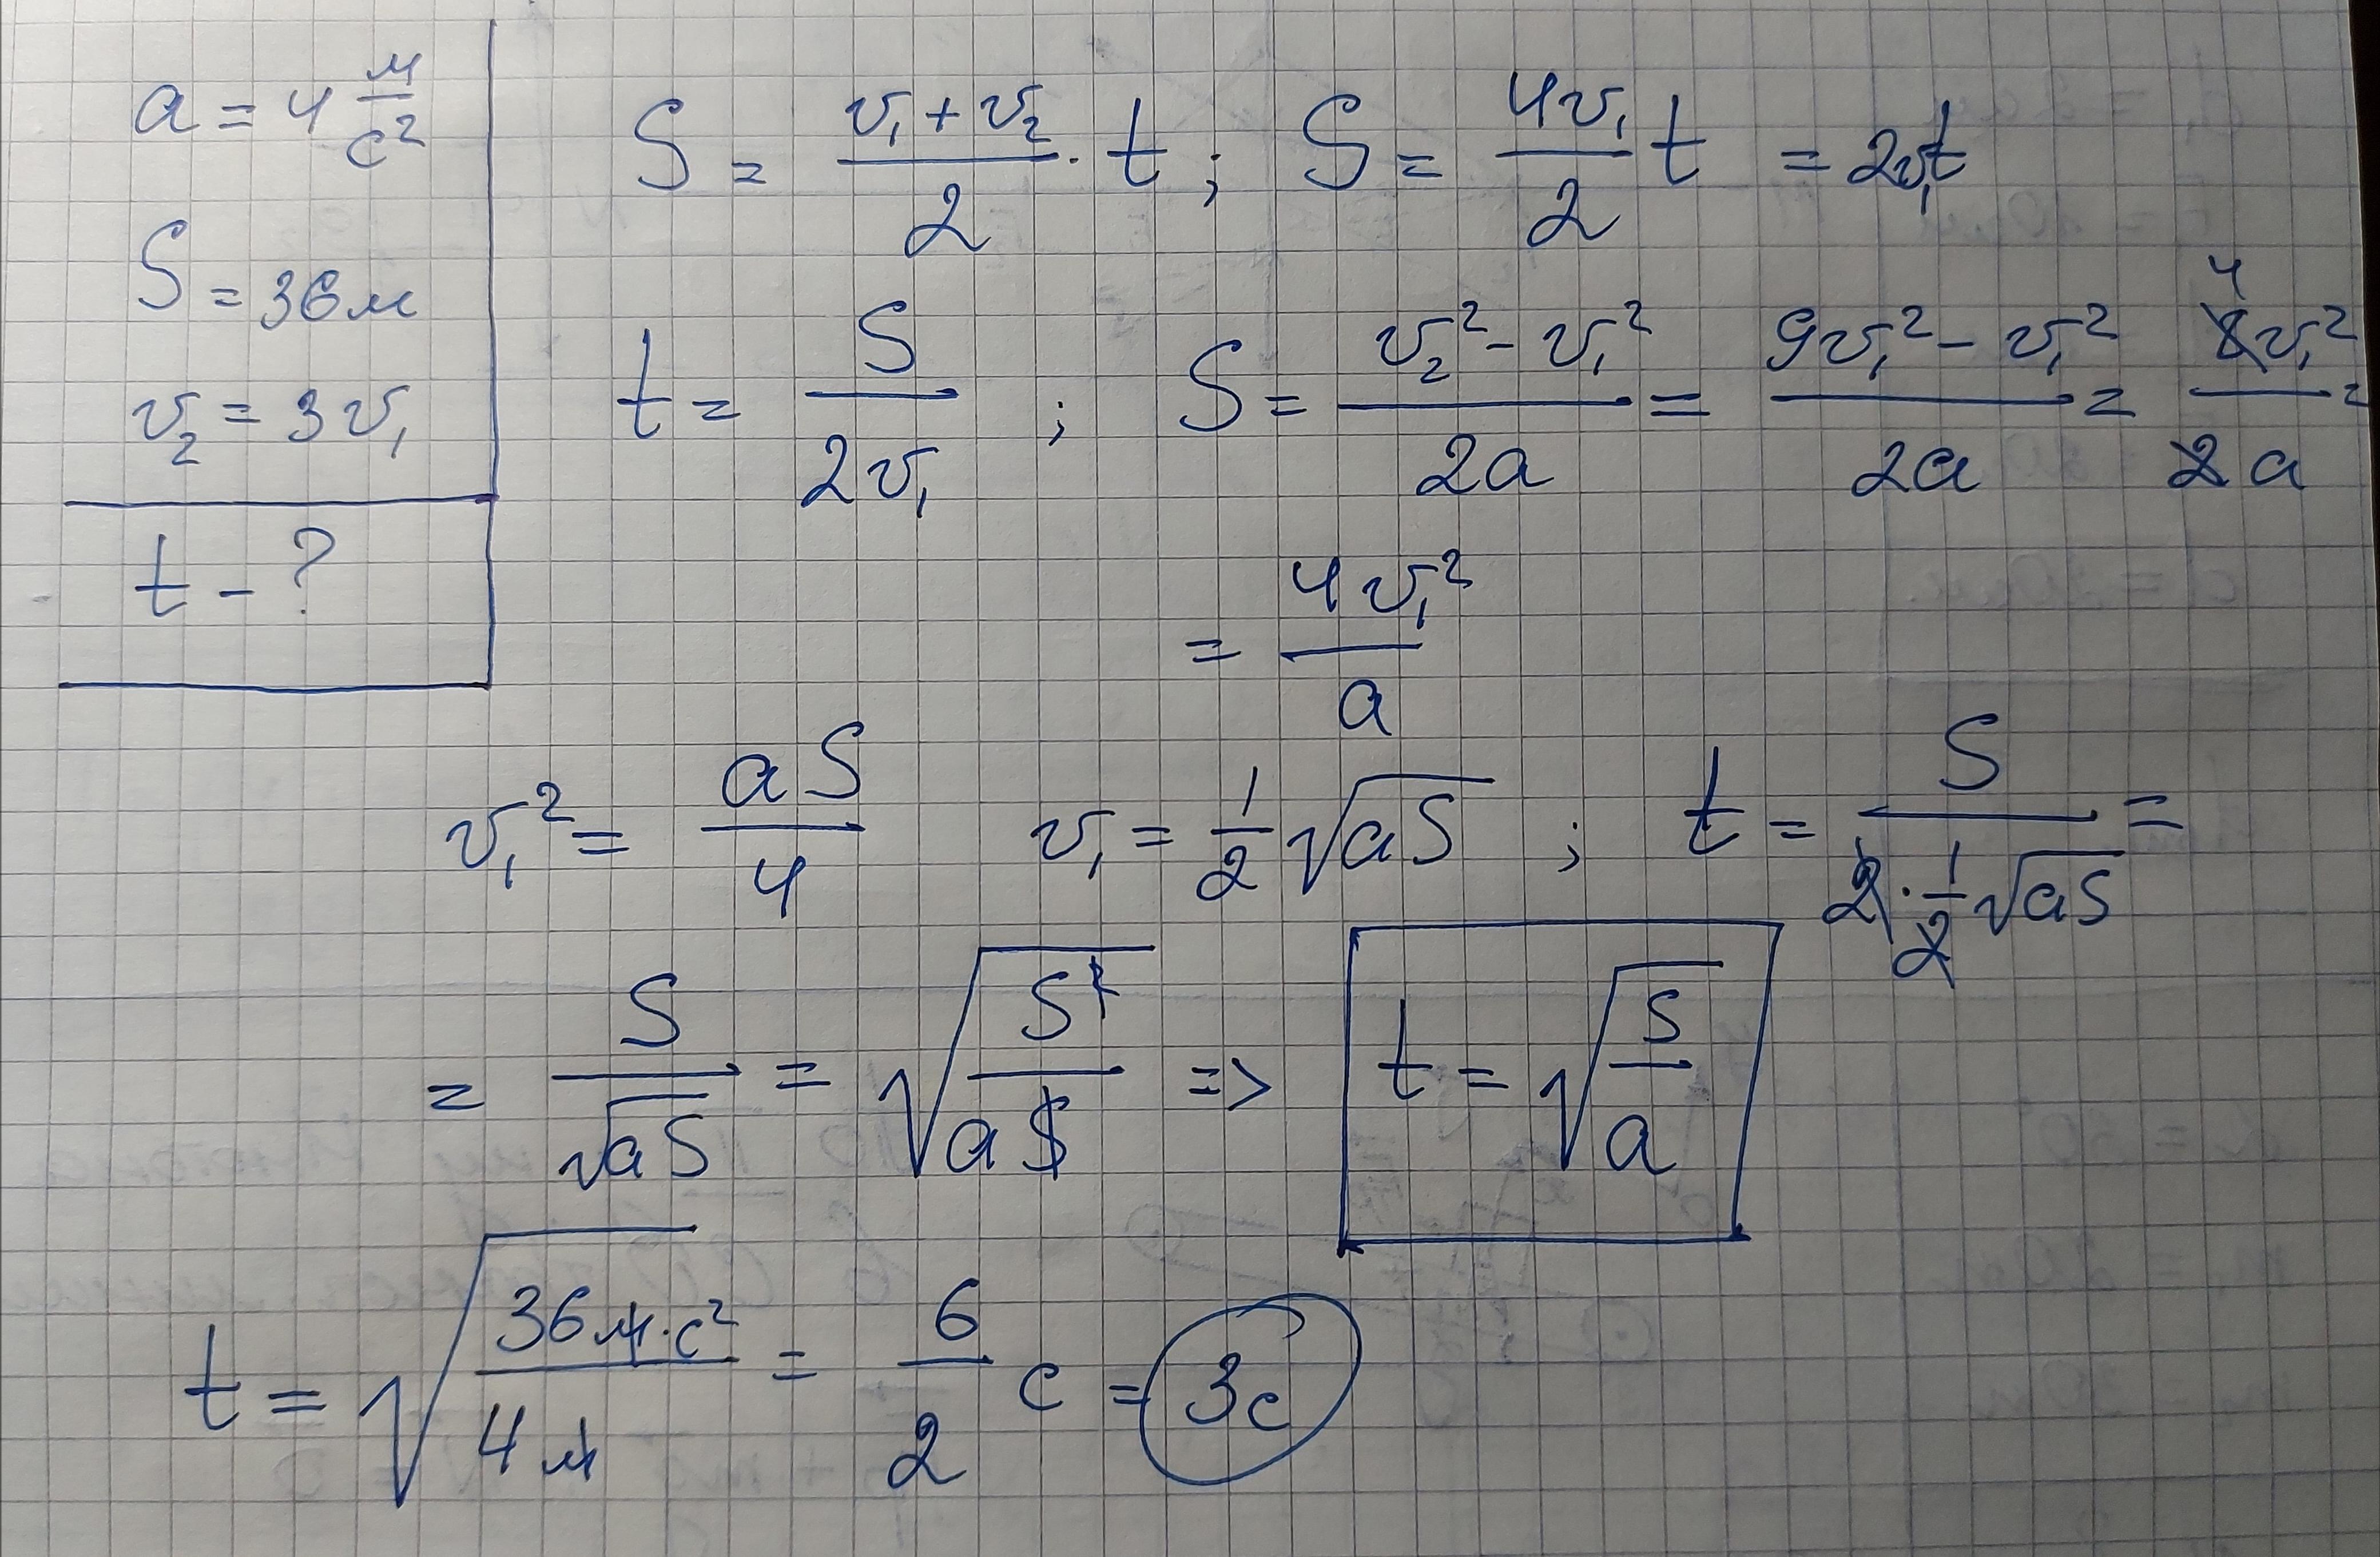 a = 4 м/с²
S = 36 м
v₂ = 3v₁
t - ?
S = (v₁ + v₂)/2 · t ; S = 4v₁/2 t = 2v₁t
t = S/(2v₁) ; S = (v₂² - v₁²)/(2a) = (9v₁² - v₁²)/(2a) = 8v₁²/(2a) =
4
= 4v₁²/a
v₁² = aS/4 v₁ = 1/2 √(aS) ; t = S/(2 · 1/2 √(aS)) =
= S/√(aS) = √(S²/(aS)) => t = √(S/a)
t = √(36 м·с²/(4 м)) = 6/2 с = 3с